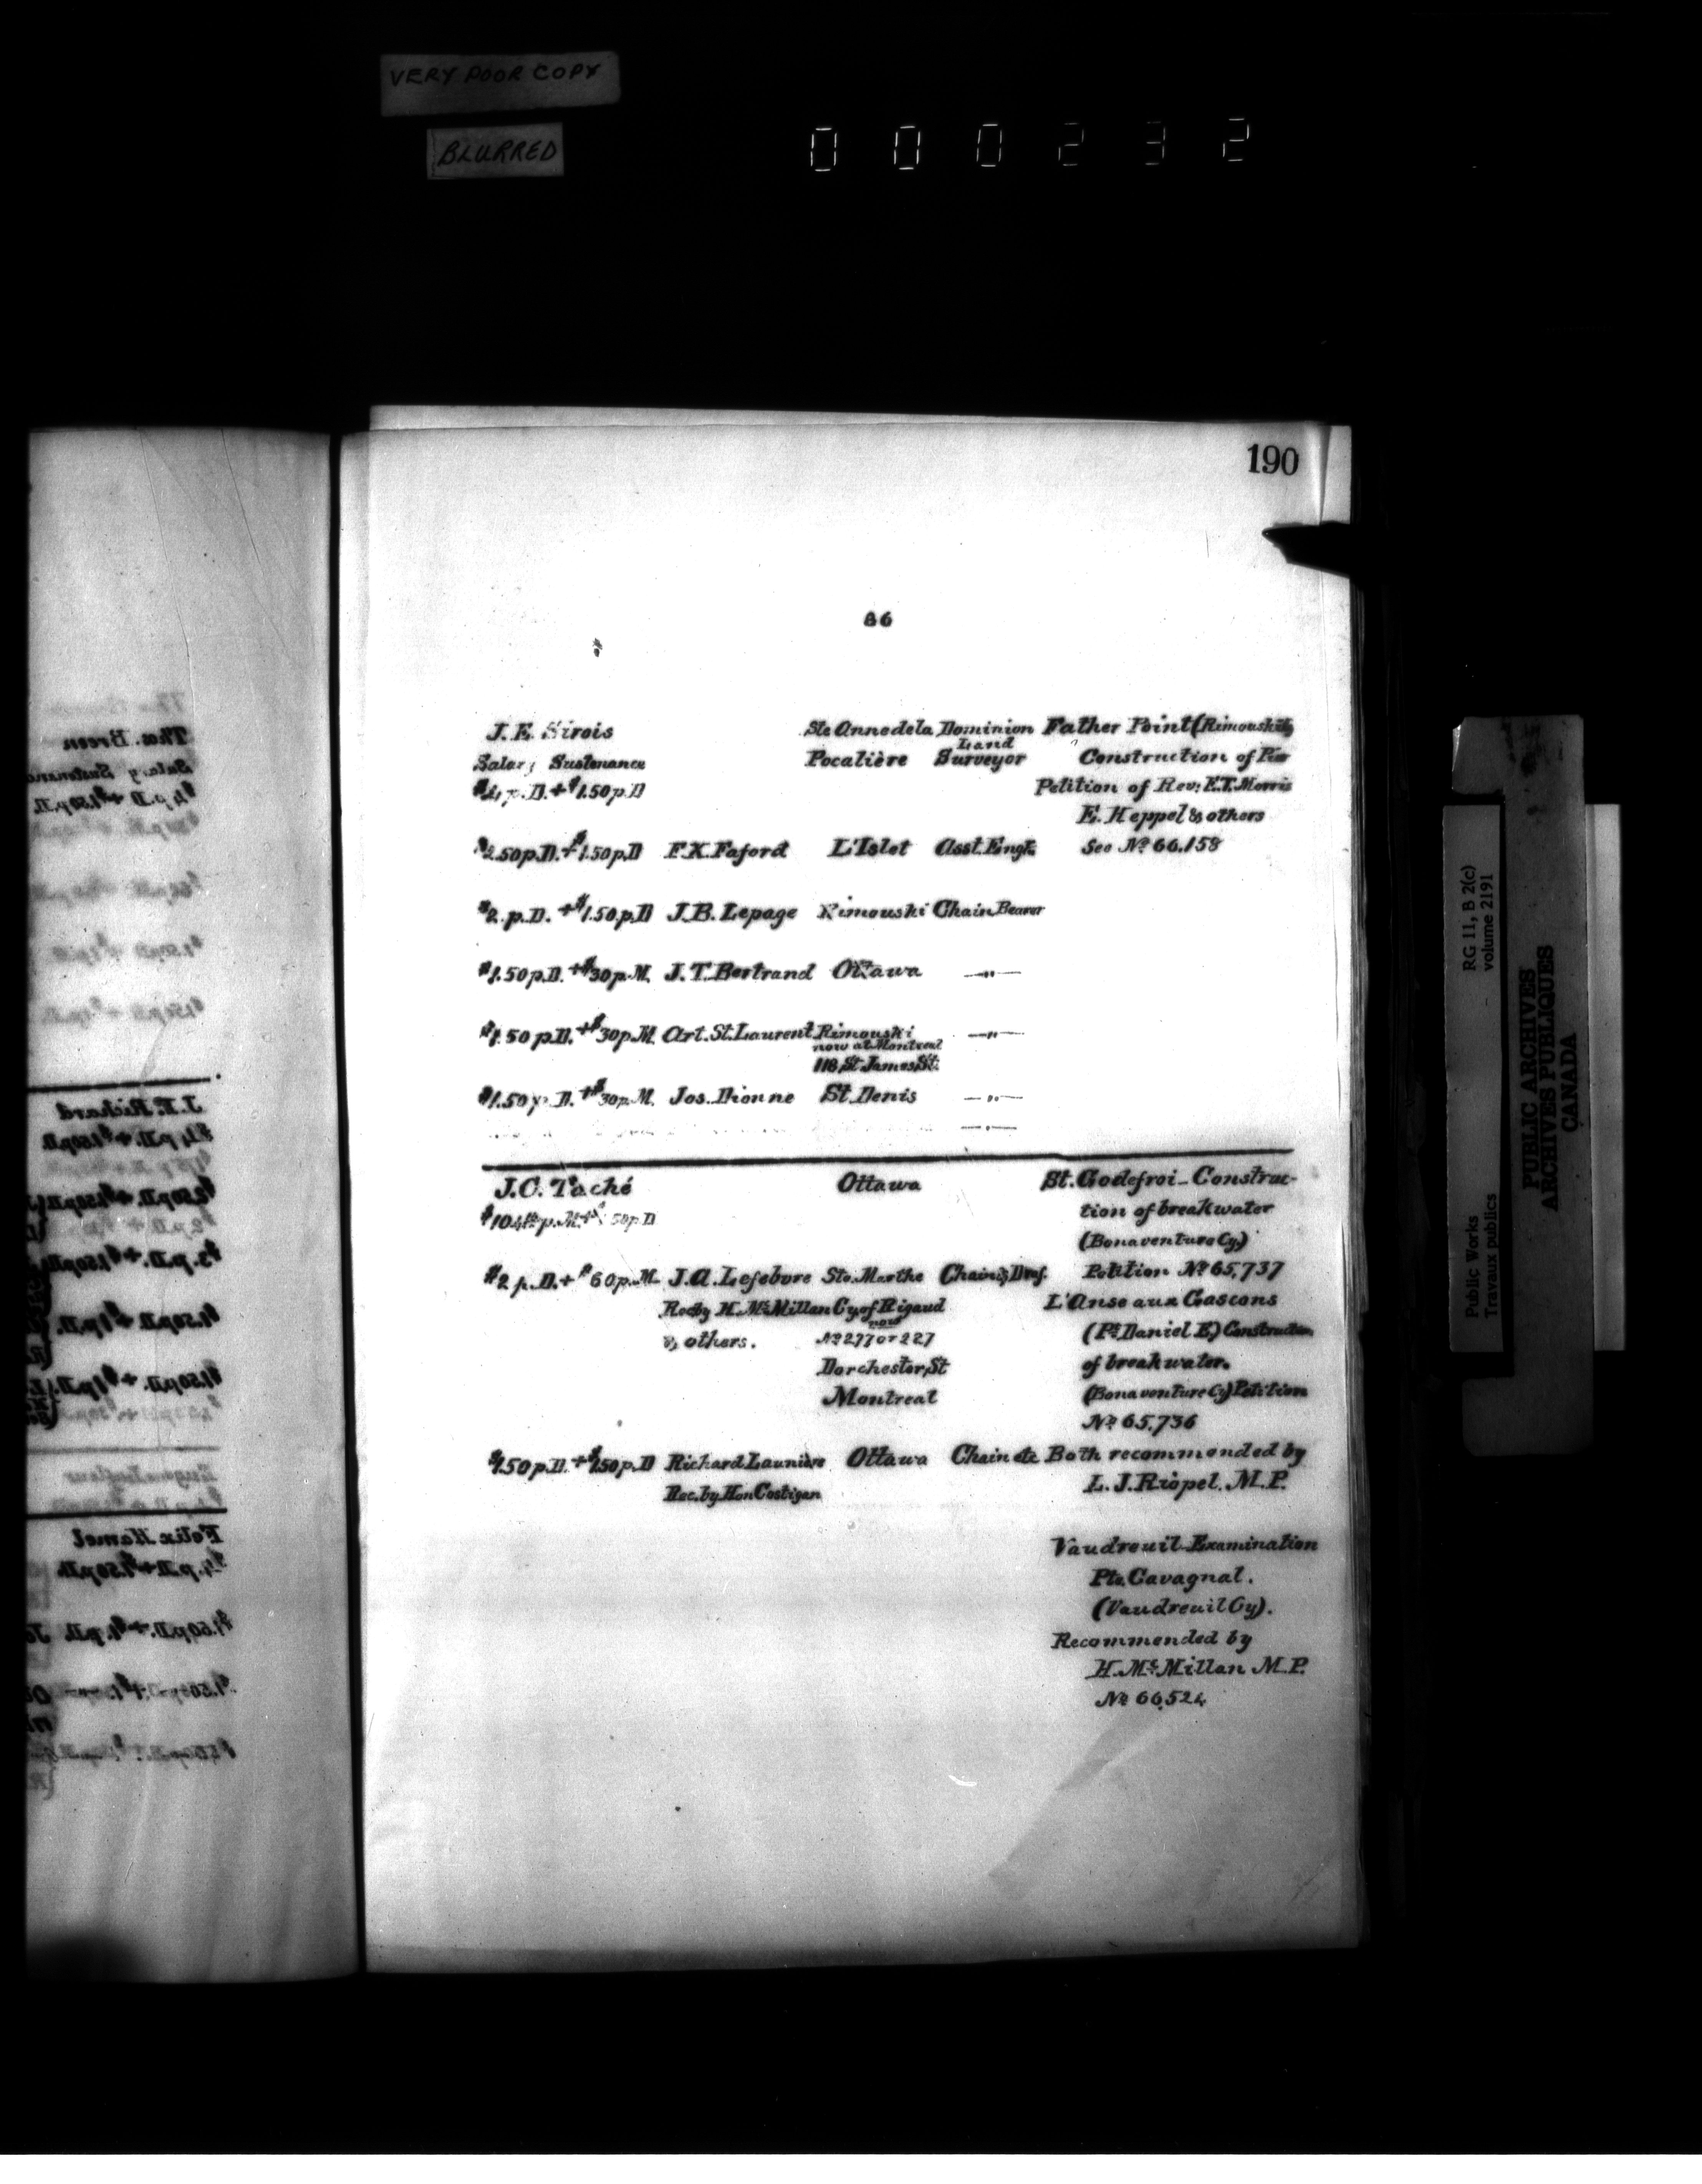 VERY POOR COPY
BLURRED
000232
190
86
J. E. Sirois Ste Anne de la Dominion Father Point (Rimouski
Land
Salary Sustenance Pocalière Surveyor Construction of Pier
$4 p.D. + $1.50 p.D Petition of Rev: E.T. Morris
E. Heppel & others
$2.50 p.D. + $1.50 p.D F.X. Faford L'Islet Asst. Engr. See No 66.158
$2. p.D. + $1.50.p.D J.B. Lepage Rimouski Chain Bearer
$1.50 p.D. + $30 p.M. J.T. Bertrand Ottawa —"—
$1.50 p.D. + $30 p.M. Art. St. Laurent Rimouski —"—
now at Montreal
118, St James St.
$1.50 p.D. + $30 p.M. Jos. Dionne St. Denis —"—
—"—
J.C. Taché Ottawa St. Godefroi - Construc-
$104 p.M. 50 p.D tion of breakwater
(Bonaventure Cy.)
$2 p.D. + $60 p.M. J.A. Lefebvre Ste. Marthe Petition No 65,737
Rec by H. McMillan Cy of Rigaud L'Anse aux Gascons
now
& others. No 277 or 227 (Pt Daniel E.) Construction
Dorchester St of breakwater.
Montreal (Bonaventure Cy) Petition
No 65,736
$1.50 p.D. + $1.50 p.D Richard Launière Ottawa Chain etc Both recommended by
Rec. by Hon Costigan L. J. Riopel. M.P.
Vaudreuil Examination
Pte. Cavagnal.
(Vaudreuil Cy).
Recommended by
H. McMillan M.P.
No 66,524
Thos. Breen
Salary Sustenance
$4 p.D + $1.50 p.D.
J. E. Richard
$4 p.D. + $1.50 p.D.
$2.50 p.D. + $1.50 p.D.
$3. p.D. + $1.50 p.D.
$1.50 p.D. + $1 p.D.
$1.50 p.D. + $1 p.D.
Felix Hamel
$4. p.D + $1.50 p.D.
$1.50 p.D. + $1. p.D.
RG 11, B 2(c)
volume 2191
Public Works
Travaux publics
PUBLIC ARCHIVES
ARCHIVES PUBLIQUES
CANADA